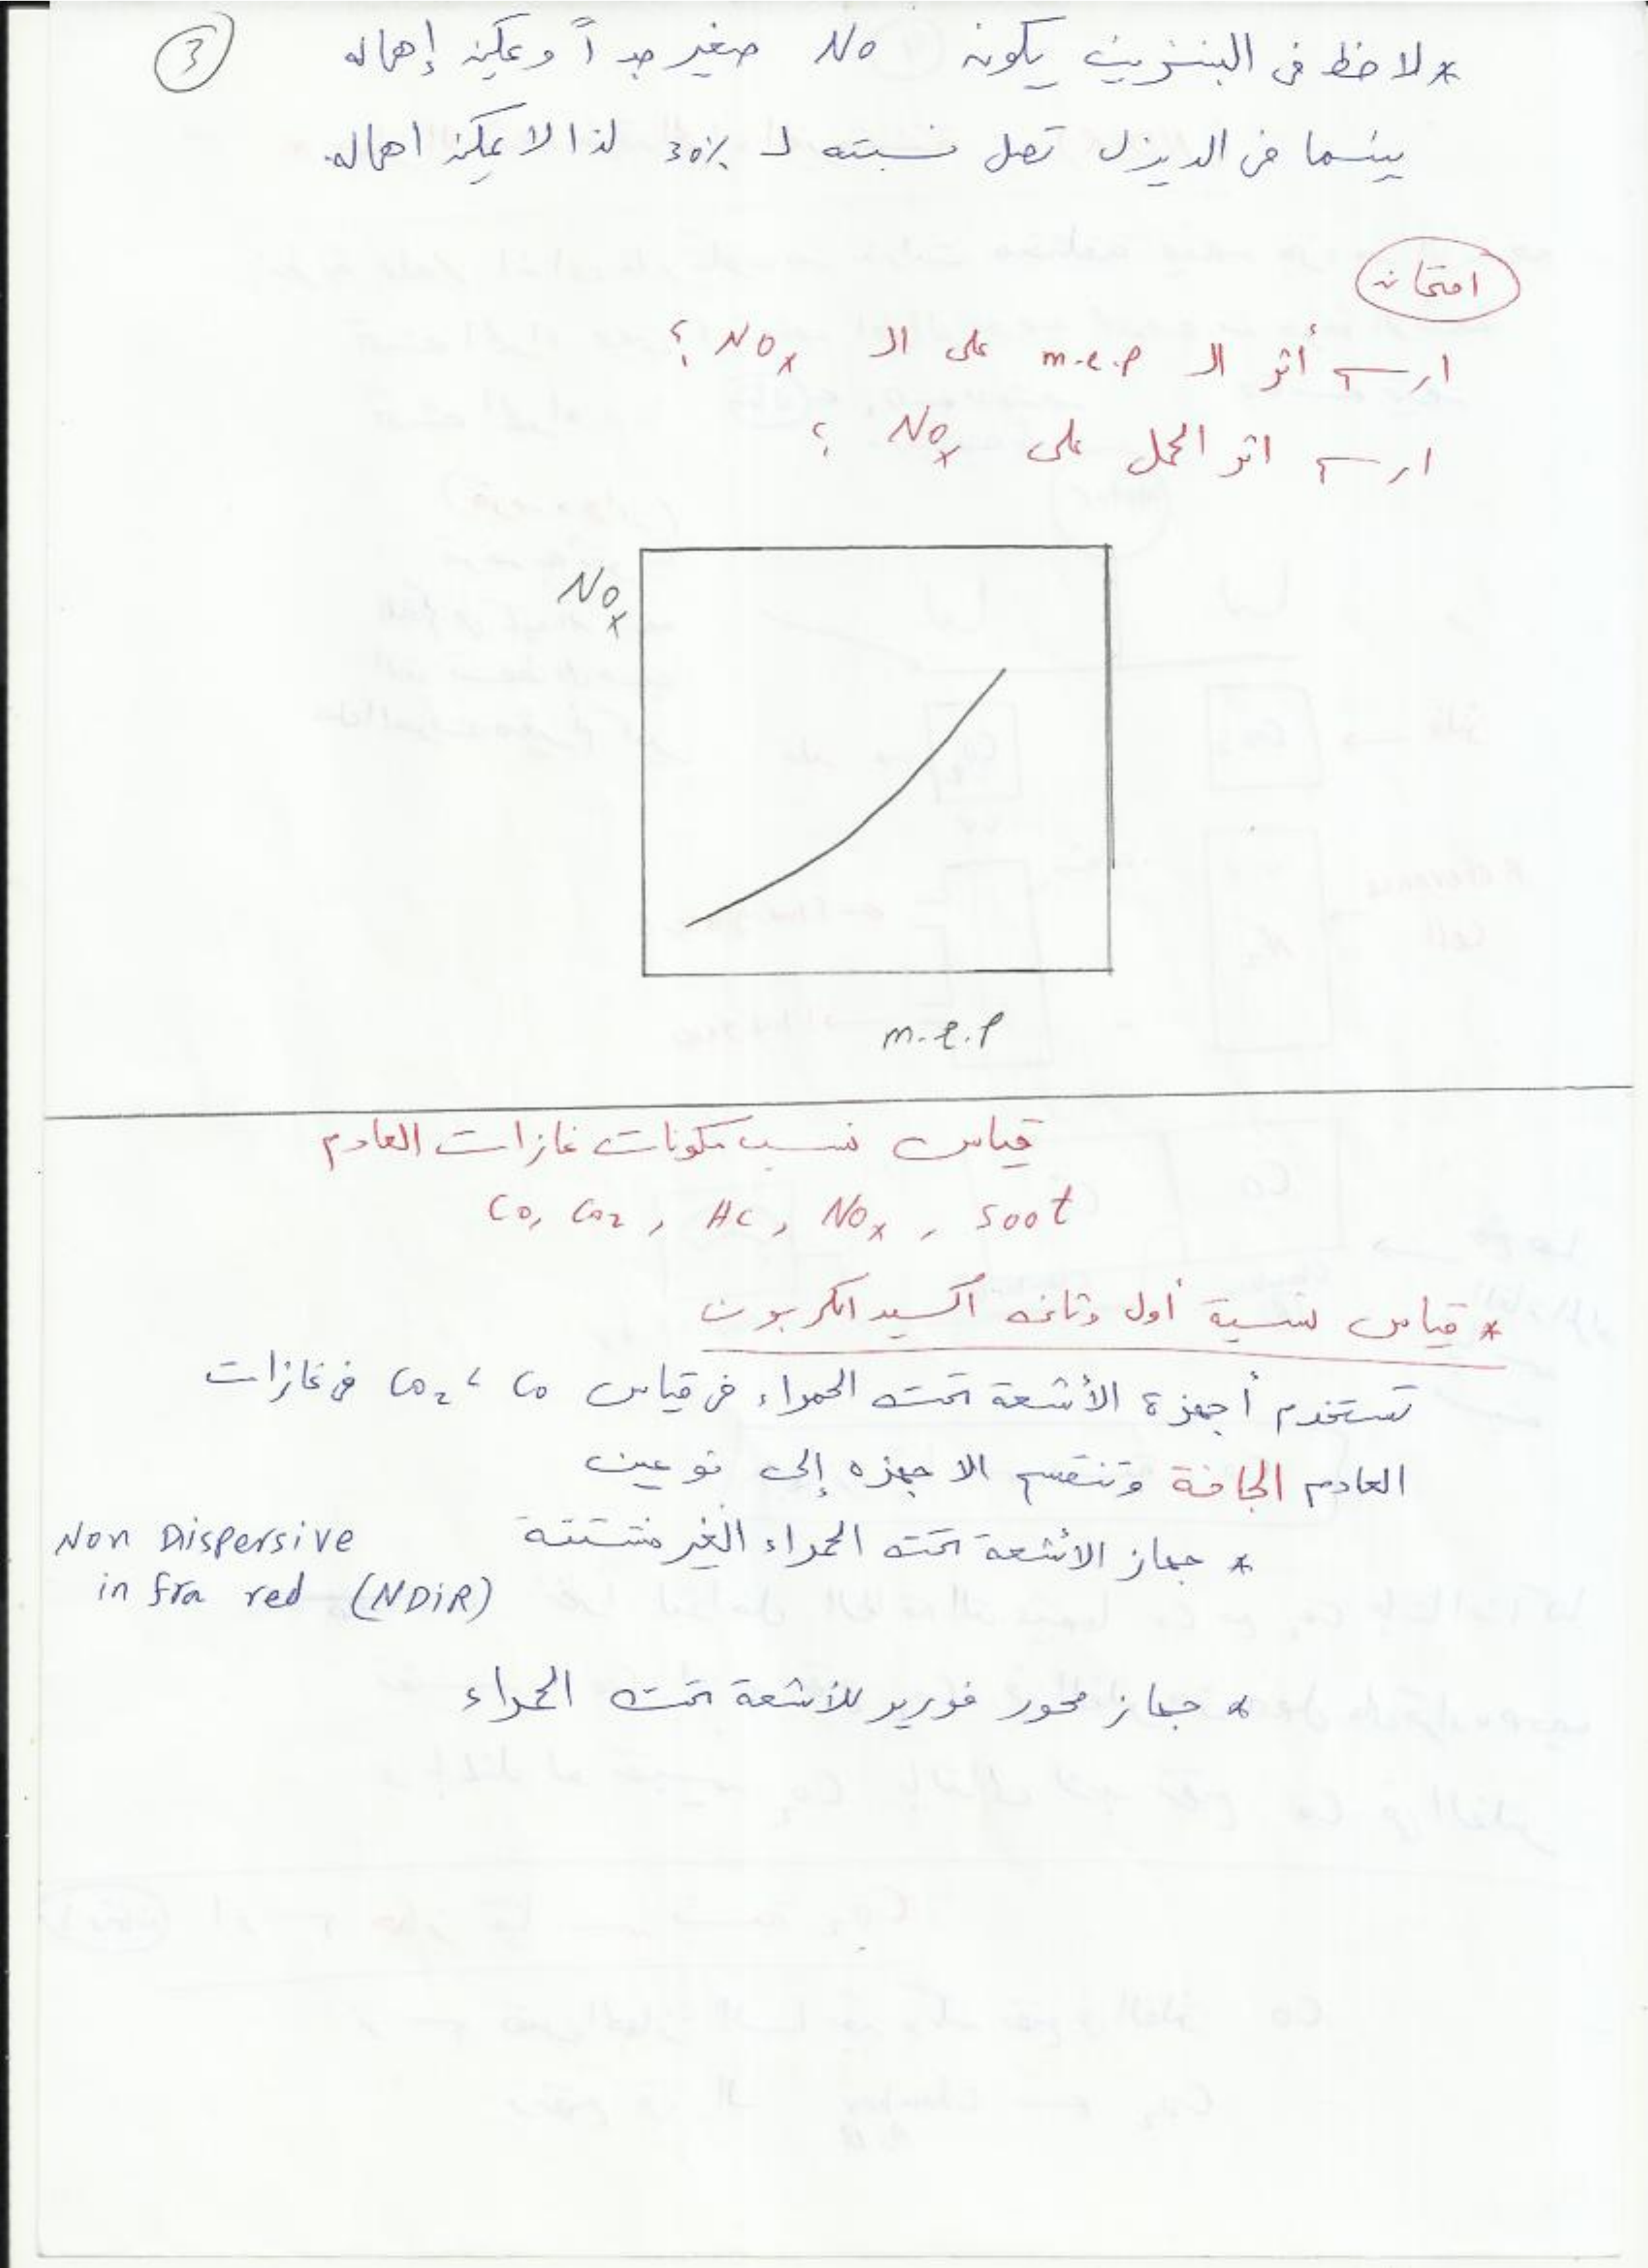 3
* لاحظ فى البنزين يكون NO صغير جداً ويمكن إهماله
بينما فى الديزل تصل نسبته لـ 30% لذا لا يمكن اهماله.
امتحان
ارسم أثر الـ m.e.p على الـ NOx ؟
ارسم اثر الحمل على NOx ؟
NOx
m.e.p
قياس نسب مكونات غازات العادم
CO, CO2, HC, NOx, soot
* قياس نسبة أول وثانى أكسيد الكربون
تستخدم أجهزة الأشعة تحت الحمراء فى قياس CO2 ، CO فى غازات
العادم الجافة وتنقسم الاجهزه إلى نوعين
* جهاز الأشعة تحت الحمراء الغير مشتتة Non Dispersive
infra red (NDiR)
* جهاز محور فورير للأشعة تحت الحمراء